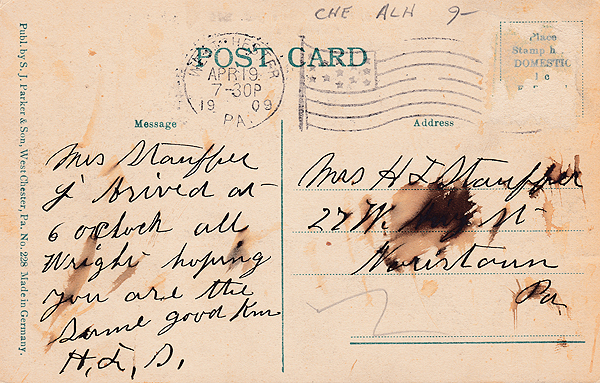 CHE ALH 9-
POST CARD
WEST CHESTER
APR 19
7-30P
1909
PA.
Place
Stamp h
DOMESTIC
1 c
Message
Address
Mrs Stauffer
I Arived at
6 oclock all
Wright hoping
you are the
same good
H. L. S.
Mrs H L Stauffer
27 W. St
Noristown
Pa
Publ. by S. J. Parker & Son, West Chester, Pa. No. 228 Made in Germany.